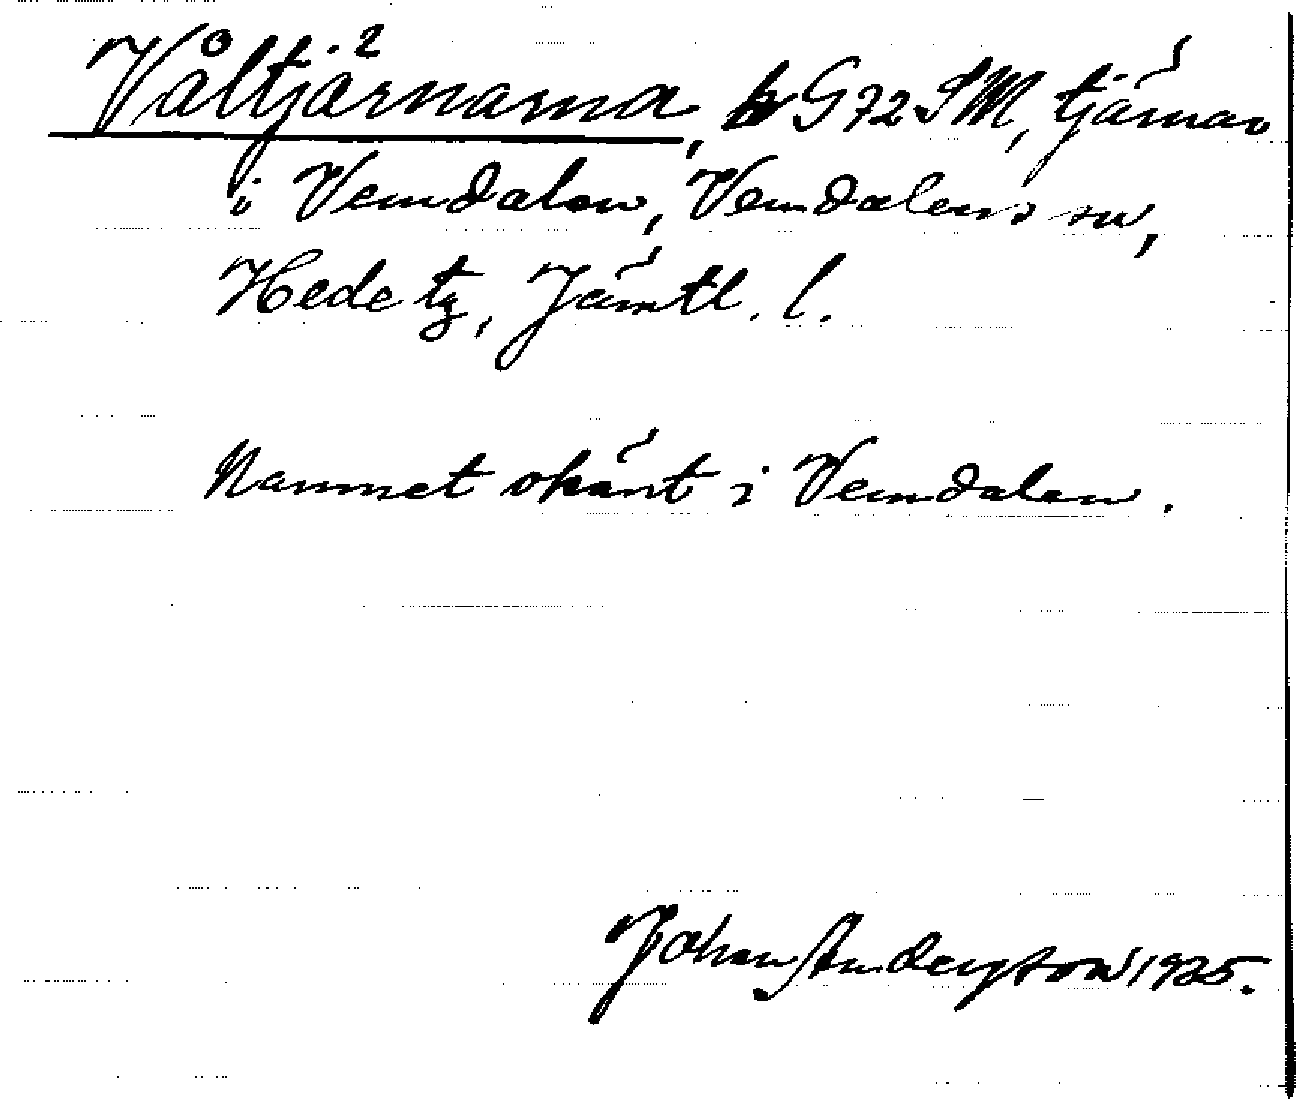 Våltjärnarna, G72SM, tjärnar
i Vemdalen, Vemdalens sn,
Hede tg, Jämtl. l.
Namnet okänt i Vemdalen.
Johan Andersson 1925.